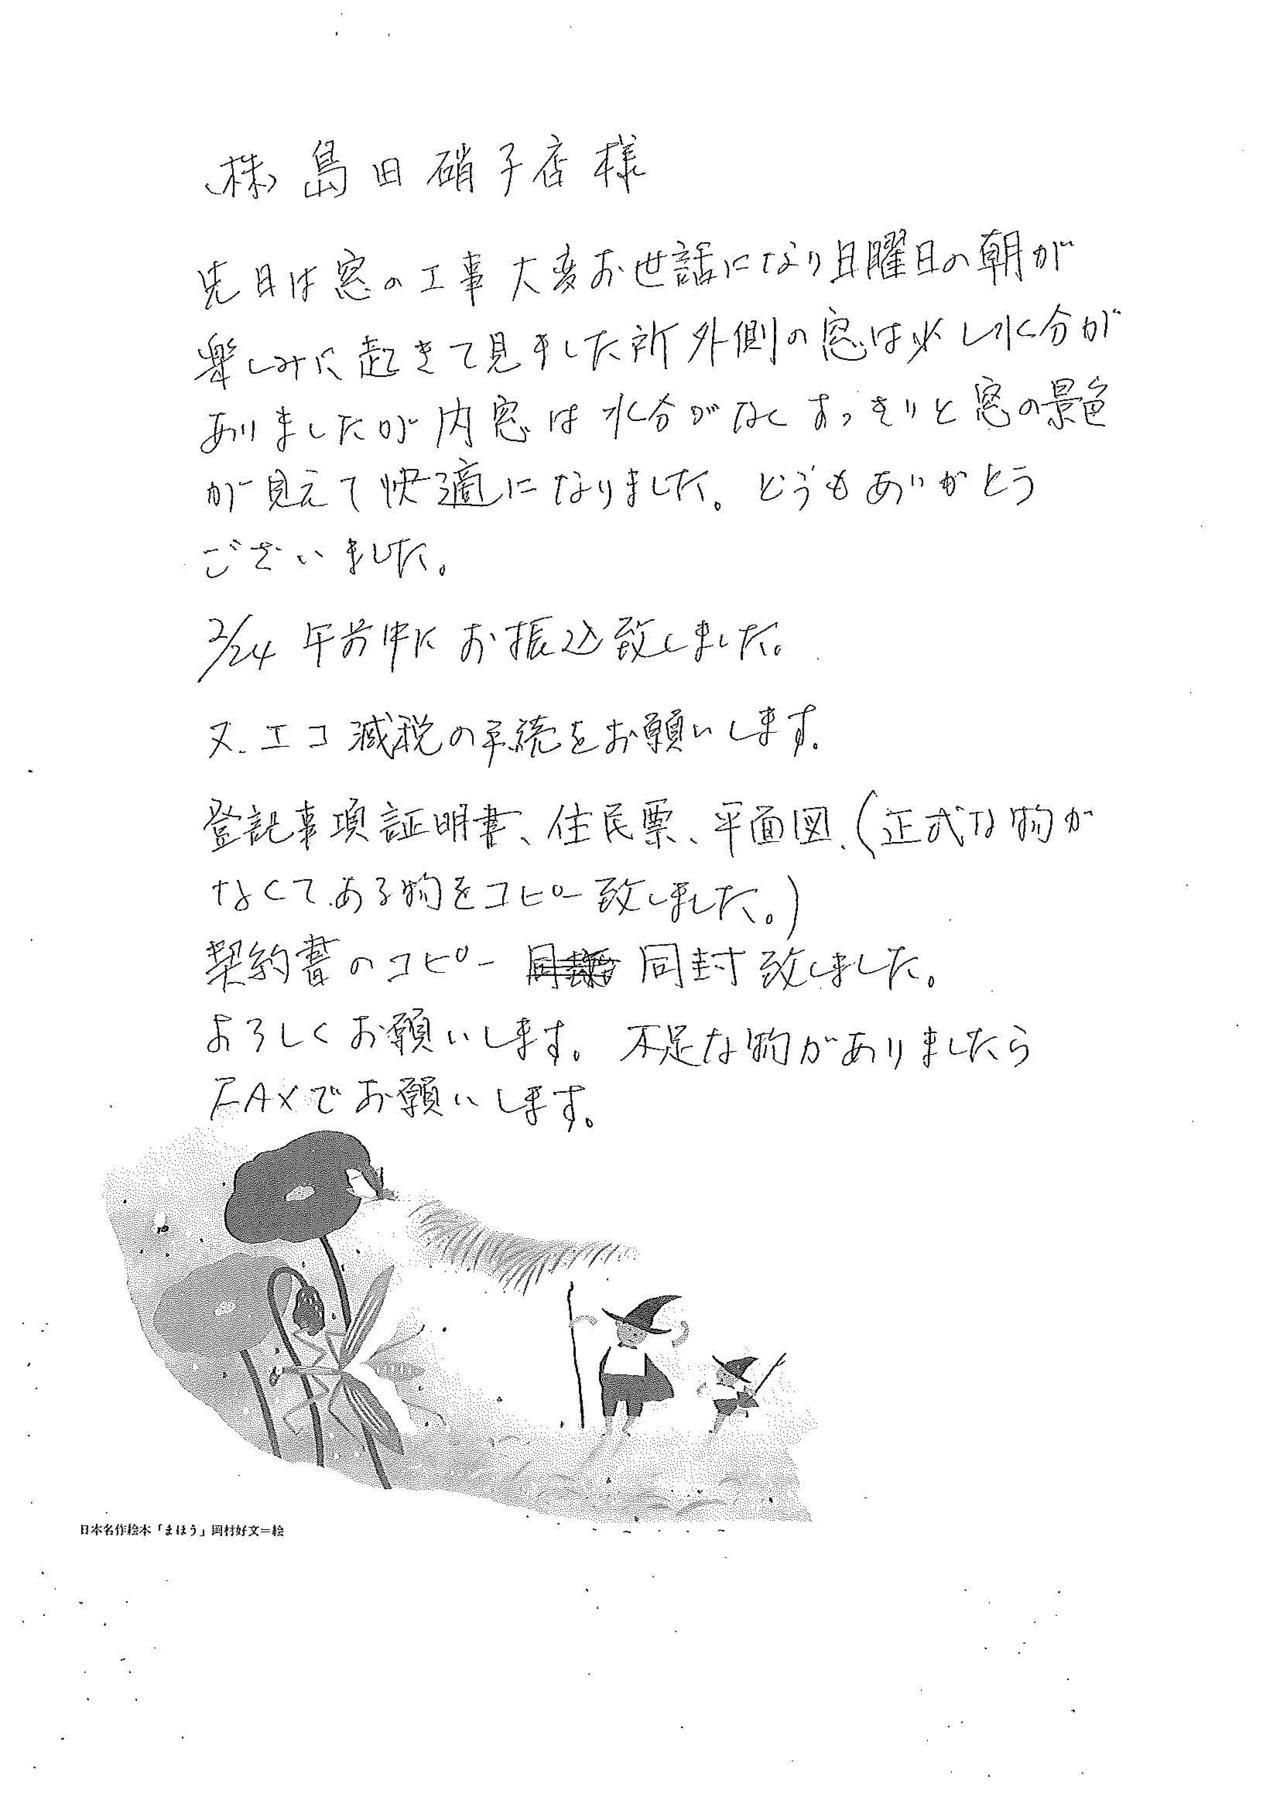 (株)島田硝子店様
先日は窓の工事大変お世話になり日曜日の朝が
楽しみに起きて見ました所外側の窓は少し水分が
ありましたが内窓は水分がなくすっきりと窓の景色
が見えて快適になりました。どうもありがとう
ございました。
2/24 午前中にお振込致しました。
又、エコ減税の手続をお願いします。
登記事項証明書、住民票、平面図、(正式な物が
なくて、ある物をコピー致しました。)
契約書のコピー 同封致しました。
よろしくお願いします。不足な物がありましたら
FAXでお願いします。
日本名作絵本「まほう」岡村好文=絵